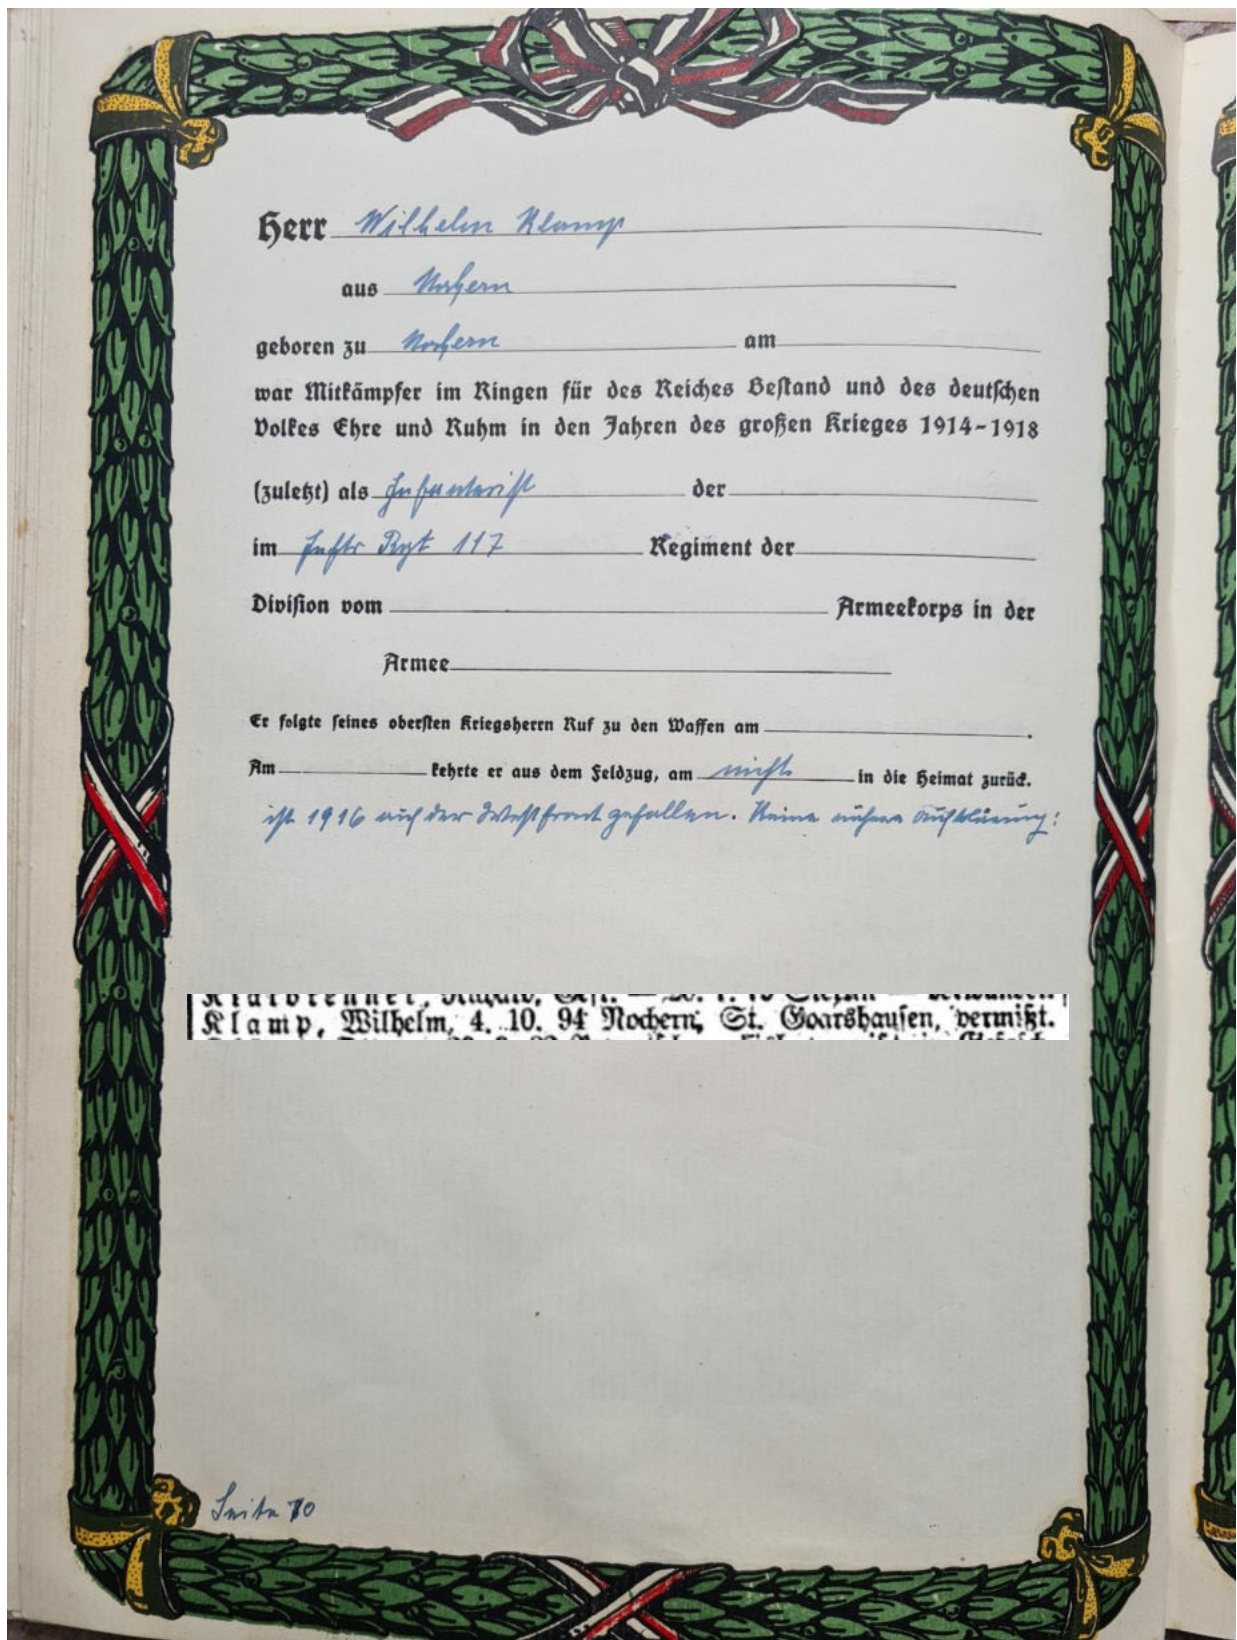 Herr Wilhelm Klamp
aus Nochern
geboren zu Nochern am
war Mitkämpfer im Ringen für des Reiches Bestand und des deutschen
Volkes Ehre und Ruhm in den Jahren des großen Krieges 1914-1918
(zuletzt) als Infanterist der
im Inftr Rgt 117 Regiment der
Division vom Armeekorps in der
Armee
Er folgte seines obersten Kriegsherrn Ruf zu den Waffen am .
Am kehrte er aus dem Feldzug, am nicht in die Heimat zurück.
ist 1916 auf der Westfront gefallen. Keine nähere Aufklärung:
Klamp, Wilhelm, 4. 10. 94 Nochern, St. Goarshausen, vermißt.
Seite 70